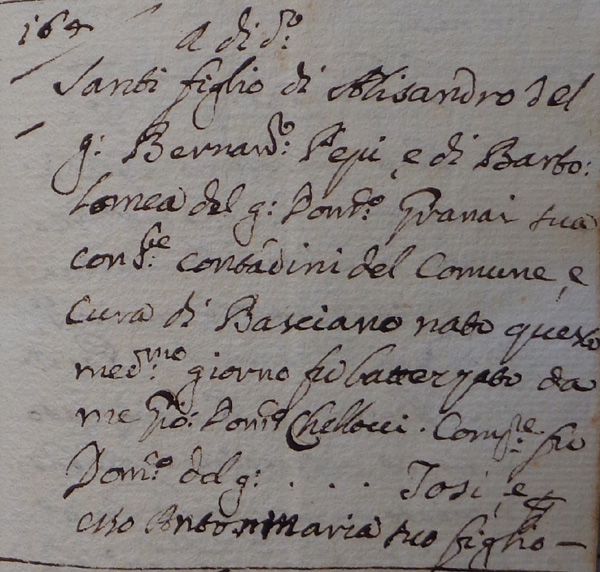 164 A dì d.º
Santi figlio di Alisandro del
g: Bernar.º Pepi, e di Barto:
lomea del g: Dom.º Granai sua
cons.te contadini del Comune, e
Cura di Basciano nato questo
med.mo giorno fù battezzato da
me Gio: Dom.º Chellucci. Comp.e fù
Dom.º del g: . . . Tosi, e p
esso Antonmaria suo figlio —